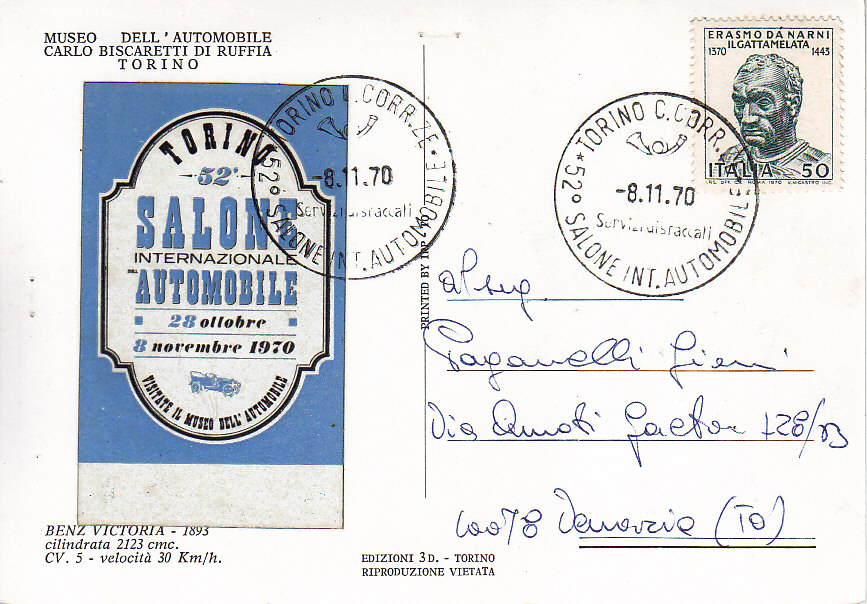 MUSEO DELL'AUTOMOBILE
CARLO BISCARETTI DI RUFFIA
TORINO
TORINO
52°
SALONE
INTERNAZIONALE
DELL'
AUTOMOBILE
28 ottobre
8 novembre 1970
VISITATE IL MUSEO DELL'AUTOMOBILE
BENZ VICTORIA - 1893
cilindrata 2123 cmc.
CV. 5 - velocità 30 Km/h.
TORINO C.CORR.ZE
-8.11.70
Servizi distaccati
*52° SALONE INT. AUTOMOBILE*
PRINTED BY
EDIZIONI 3 D. - TORINO
RIPRODUZIONE VIETATA
ERASMO DA NARNI
1370 IL GATTAMELATA 1443
ITALIA 50
I.P.S. OFF. CV. ROMA - 1970 V. NICASTRO INC.
TORINO C.CORR.ZE
-8.11.70
Servizi distaccati
*52° SALONE INT. AUTOMOBILE
Paganelli
Via Amati
10078 Venaria (TO)